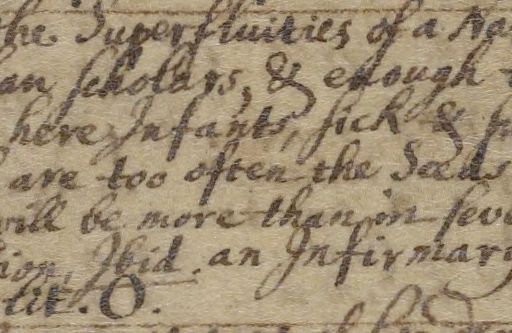 the Superfluities of a Na
an scholars, & enough
here Infants, sick &
are too often the Seeds
will be more than in seve
tion, Ibid. an Infirmary
lit. O.